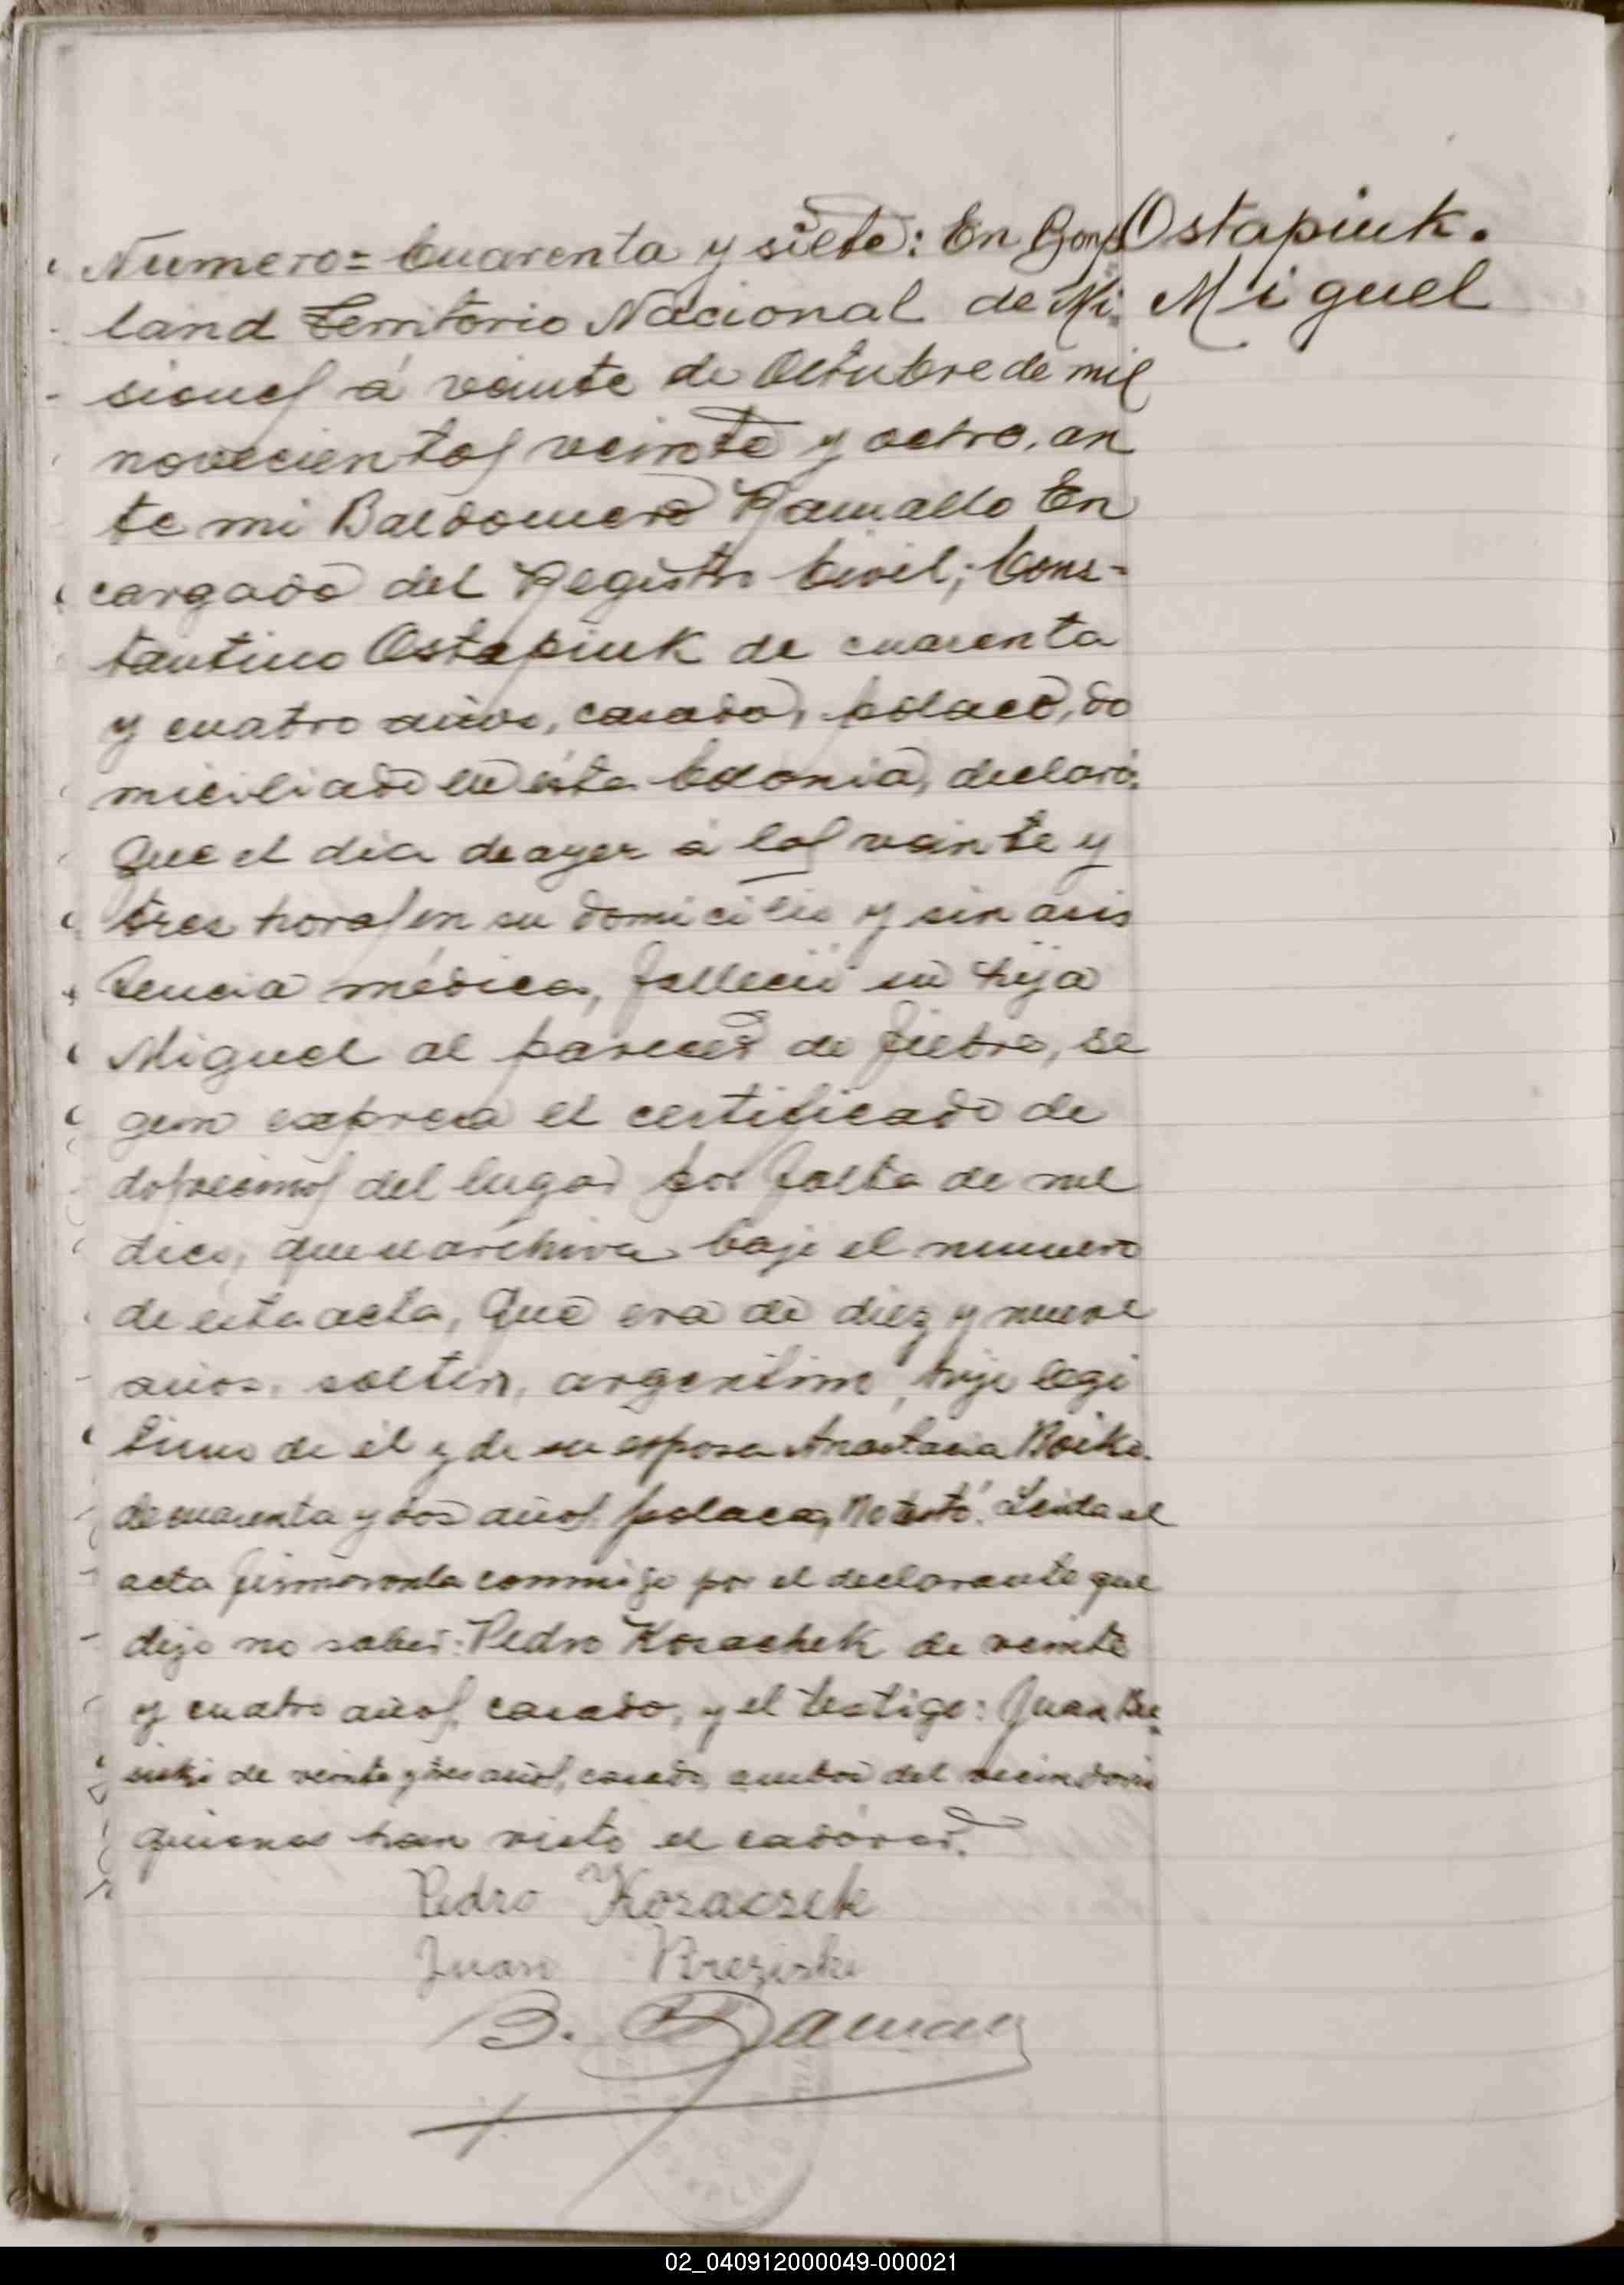 Ostapiuk.
Miguel
Numero = Cuarenta y siete: En Bonp
land Territorio Nacional de Mi
siones á veinte de Octubre de mil
novecientos veinte y ocho, an
te mi Baldomero Ramallo En
cargado del Registro Civil; Cons-
tantino Ostapiuk de cuarenta
y cuatro años, casado, polaco, do
miciliado en esta Colonia, declaró:
Que el dia de ayer á las veinte y
tres horas en su domicilio y sin asis
tencia médica, falleció su hijo
Miguel al parecer de fiebre, se
gun expresa el certificado de
dos vecinos del lugar por falta de me
dico, que se archiva bajo el numero
de esta acta, Que era de diez y nueve
años, soltero, argentino, hijo legi
timo de él y de su esposa Anastacia Boiko
de cuarenta y dos años polaca, No testó. Leida el
acta firmaronla conmigo por el declarante que
dijo no saber: Pedro Kosachek de veinte
y cuatro años, casado, y el testigo: Juan Bre
siski de veinte y tres años, casado, ambos del vecindario
quienes han visto el cadáver.
Pedro Kozaczek
Juan Breziski
B. Ramallo
02_040912000049-000021